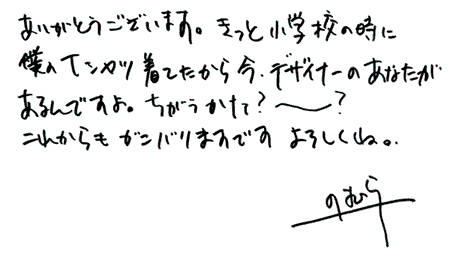 ありがとうございます。きっと小学校の時に
僕のTシャツ着てたから今、デザイナーのあなたが
あるんですよ。ちがうかな?〜?
これからもガンバリますです よろしくね。
のむら